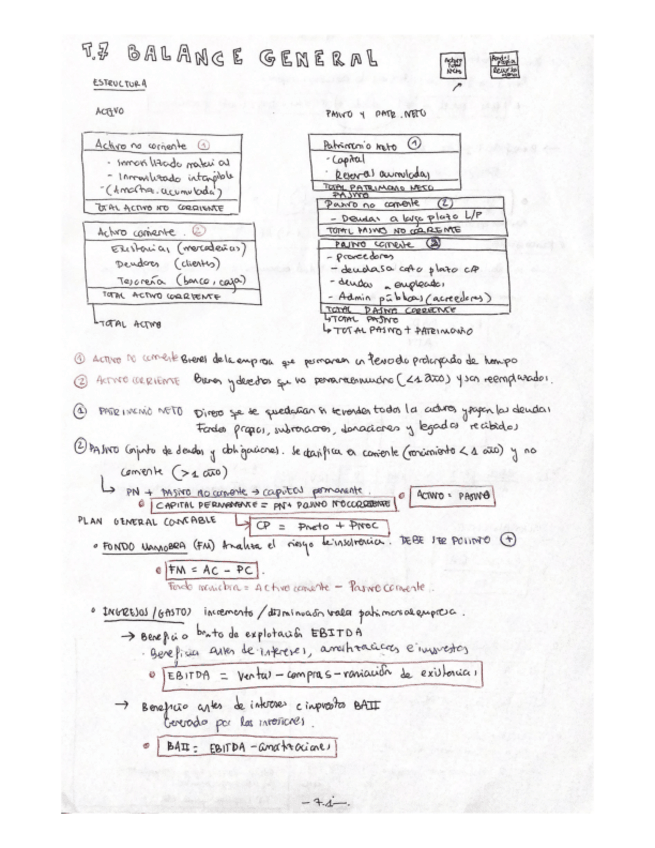 T.7 BALANCE GENERAL
ESTRUCTURA
ACTIVO
PASIVO Y PATR. NETO
Activo no corriente ①
- Inmovilizado material
- Inmovilizado intangible
- (Amortiz. acumulada)
TOTAL ACTIVO NO CORRIENTE
Activo corriente ②
Existencias (mercaderías)
Deudores (clientes)
Tesorería (banco, caja)
TOTAL ACTIVO CORRIENTE
↳ TOTAL ACTIVO
Patrimonio Neto ①
- Capital
- Reservas acumuladas
TOTAL PATRIMONIO NETO
PASIVO
Pasivo no corriente ②
- Deudas a largo plazo L/P
TOTAL PASIVO NO CORRIENTE
PASIVO corriente
- proveedores
- deudas a corto plazo CP
- deudas a empleados
- Admin públicas (acreedores)
TOTAL PASIVO CORRIENTE
↳ TOTAL PASIVO
↳ TOTAL PASIVO + PATRIMONIO
① ACTIVO no corriente Bienes de la empresa que permanecen un periodo prolongado de tiempo
② ACTIVO CORRIENTE Bienes y derechos que no permanecen mucho (<1 año) y son reemplazados.
① PATRIMONIO NETO Dinero que se quedarían si vendes todos los activos y pagas las deudas
Fondos propios, subvenciones, donaciones y legados recibidos
② PASIVO Conjunto de deudas y obligaciones. Se clasifica en corriente (vencimiento < 1 año) y no
corriente (> 1 año)
↳ PN + Pasivo no corriente → capital permanente.
CAPITAL PERMANENTE = PN + PASIVO NO CORRIENTE
ACTIVO = PASIVO
PLAN GENERAL CONTABLE
CP = Pneto + PnoC
• FONDO MANIOBRA (FM) Analiza el riesgo de insolvencia. DEBE SER POSITIVO ⊕
FM = AC - PC
Fondo maniobra = Activo corriente - Pasivo corriente.
• INGRESOS/GASTOS incremento/disminución valor patrimonial empresa.
→ Beneficio bruto de explotación EBITDA
· Beneficio antes de intereses, amortizaciones e impuestos
EBITDA = ventas - compras - variación de existencias
→ Beneficio antes de intereses e impuestos BAII
Generado por las inversiones.
BAII = EBITDA - amortizaciones
- 7.1 -